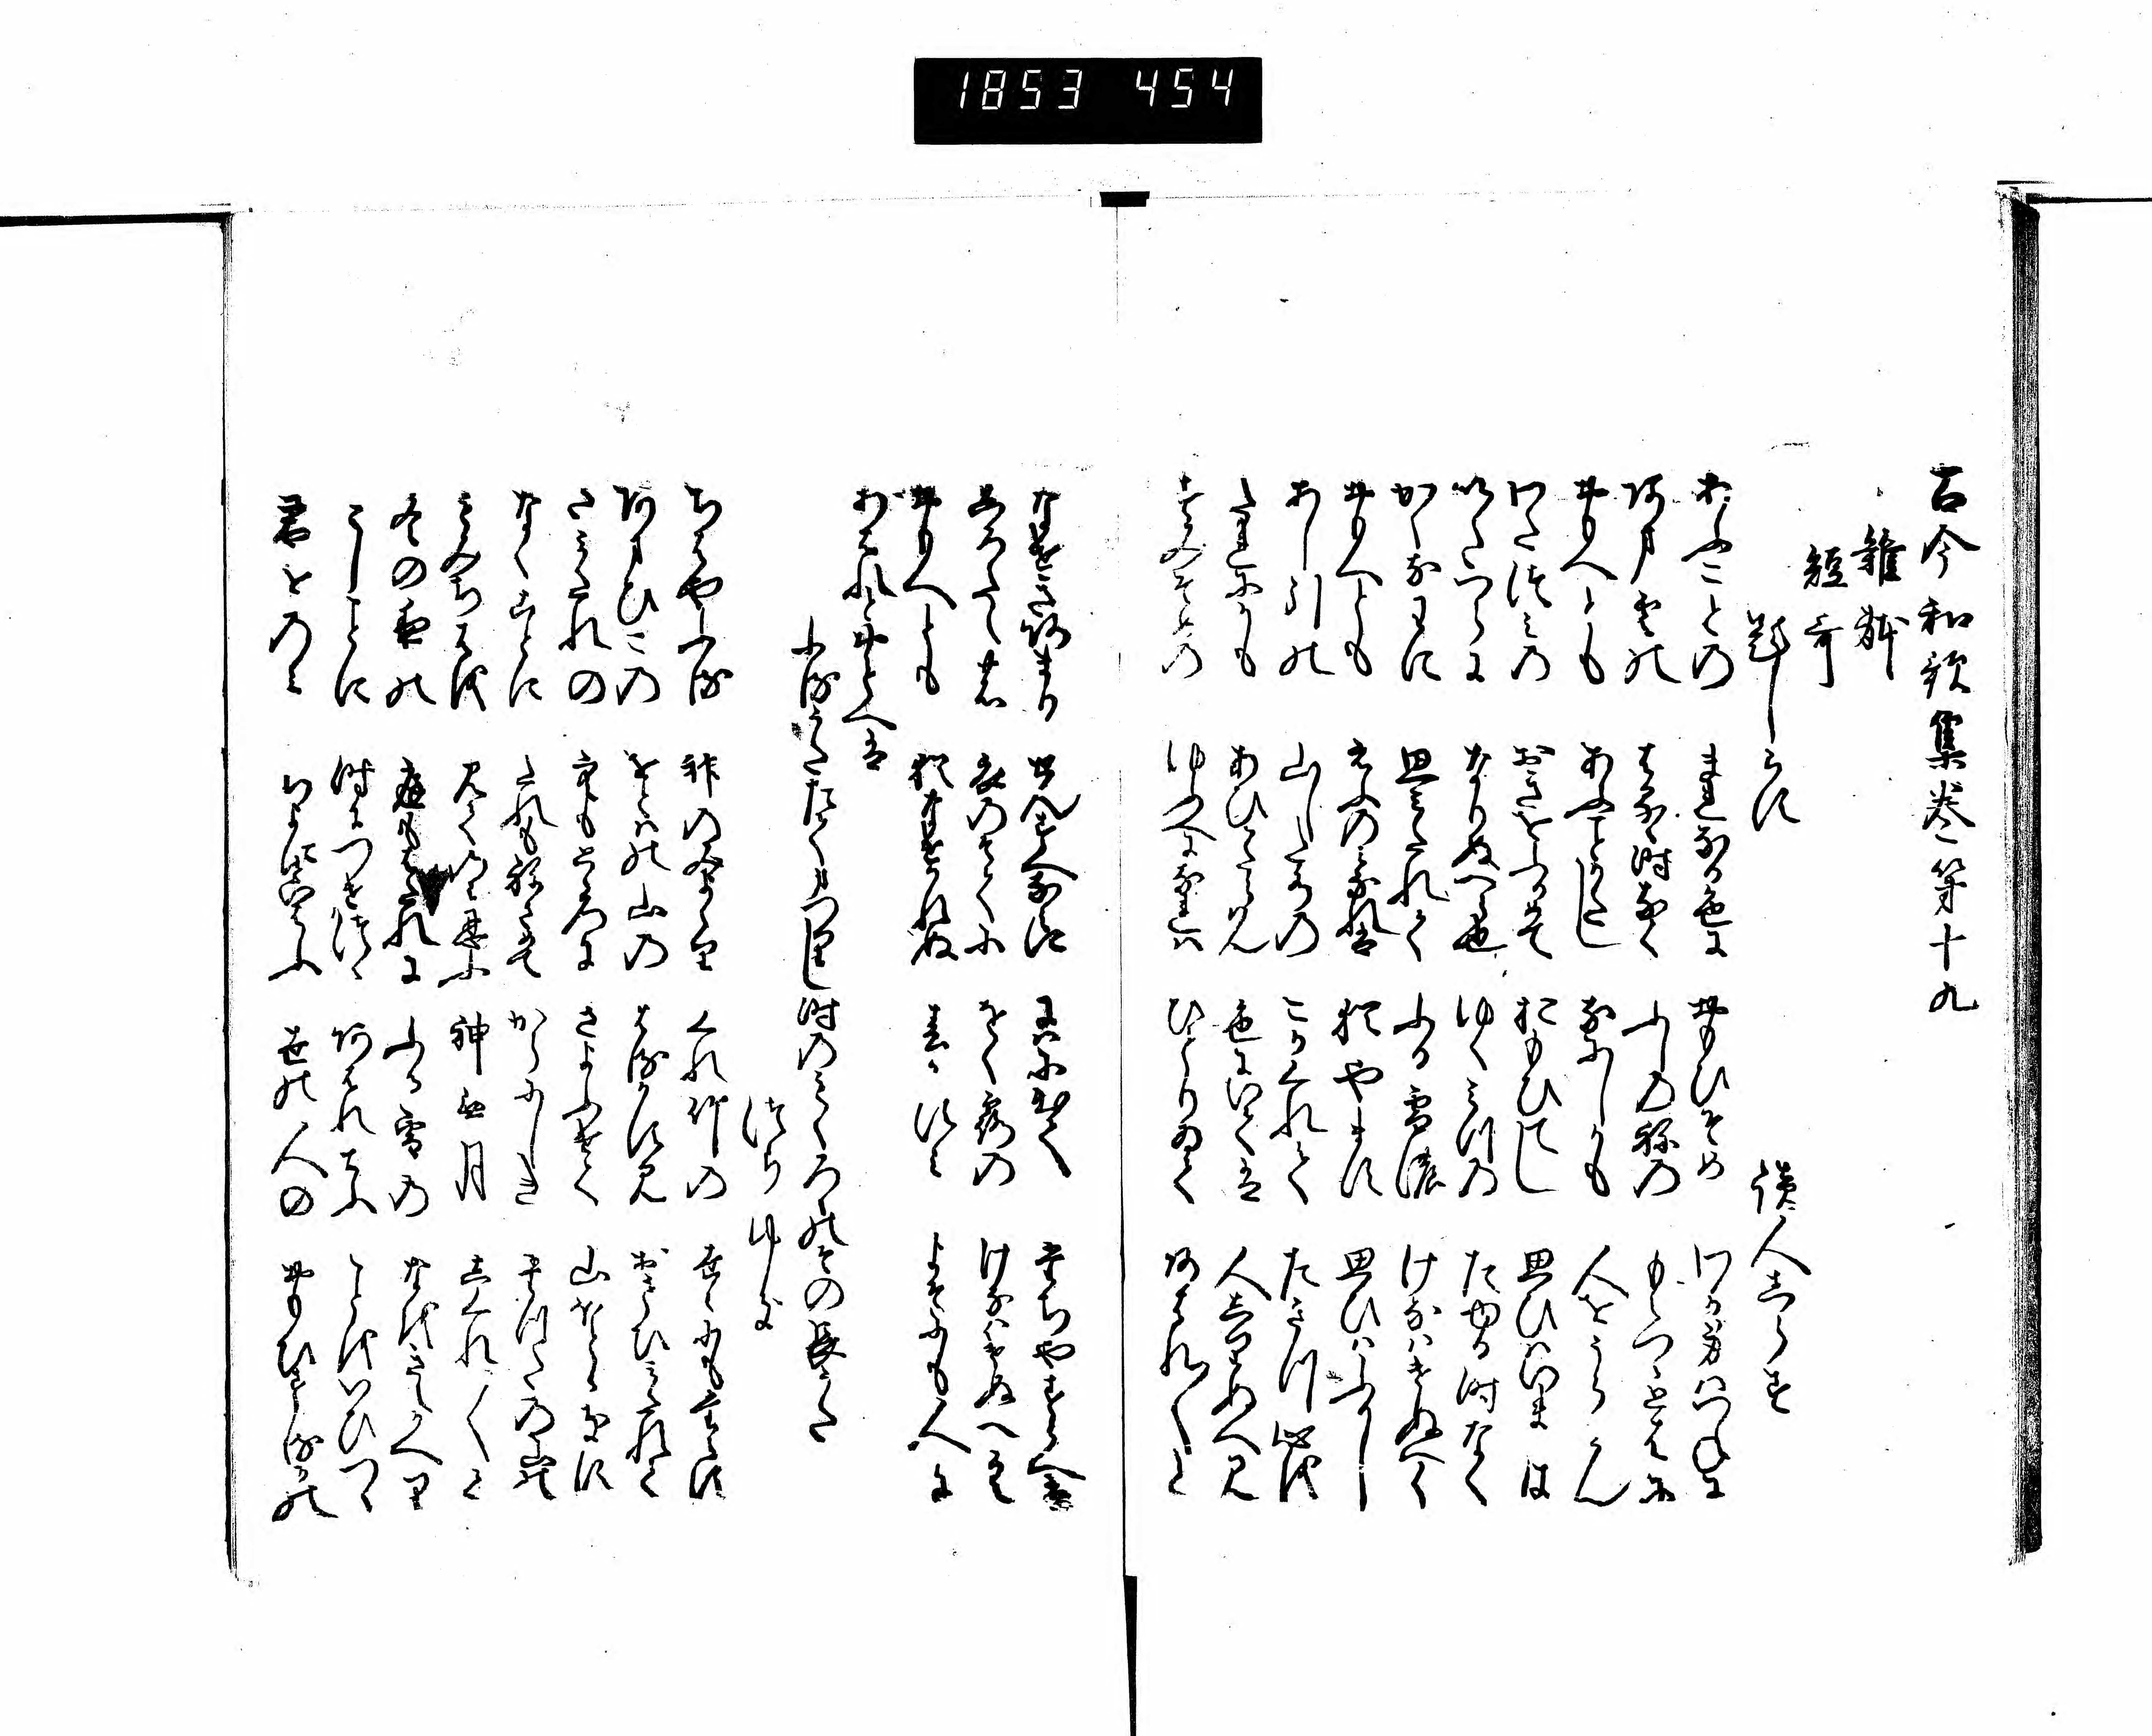 古今和歌集巻第十九
雑躰
短哥
題しらす
読人しらす
あふことの まれなる色に おもひそめ わか身はつねに
あま雲の はるゝ時なく ふしの祢の もえつゝとはに
おもへとも あふことかたし なにしかも 人をうらみん
わたつみの おきをふかめて おもひてし 思ひはいまは
いたつらに なりぬへら也 ゆくみつの たゆる時なく
かくなわに 思みたれて ふる雪の けなはけぬへく
おもへとも えふの身なれは 猶やます 思ひはふかし
あし引の 山した水の こかくれて たきつ心を
たれにかも あひかたらはん 色にいては 人しりぬへみ
すみそめの ゆふへになれは ひとりゐて あはれ〳〵と
なけきあまり せんすへなみに 庭にいてゝ たちやすらへは
しろたへの 衣のそてに をく露の けなはけぬへく
おもへとも 猶なけかれぬ 春かすみ よそにも人に
あはんとおもへは
ふるうたたてまつりし時のもくろくのその長うた
つらゆき
ちはやふる 神のみよより くれ竹の 世ゝにもたえす
あまひこの をとは山の はるかすみ おもひみたれて
さみたれの 空もとゝろに さよふけて 山ほとゝきす
なくことに たれもねさめて からにしき たつたの山の
もみちはを 見てのみしのふ 神無月 しくれ〳〵て
冬の夜の 庭もはたれに ふる雪の なをきえかへり
としことに 時につけつゝ あはれてふ ことをいひつゝ
君をのみ ちよにといはふ 世の人の おもひするかの
1853 454